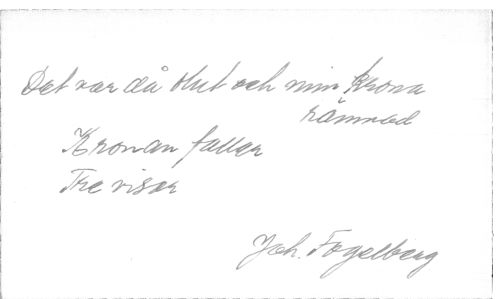 Det var då slut och min krona
rämnad
Kronan faller
Tre visor
Joh. Fogelberg